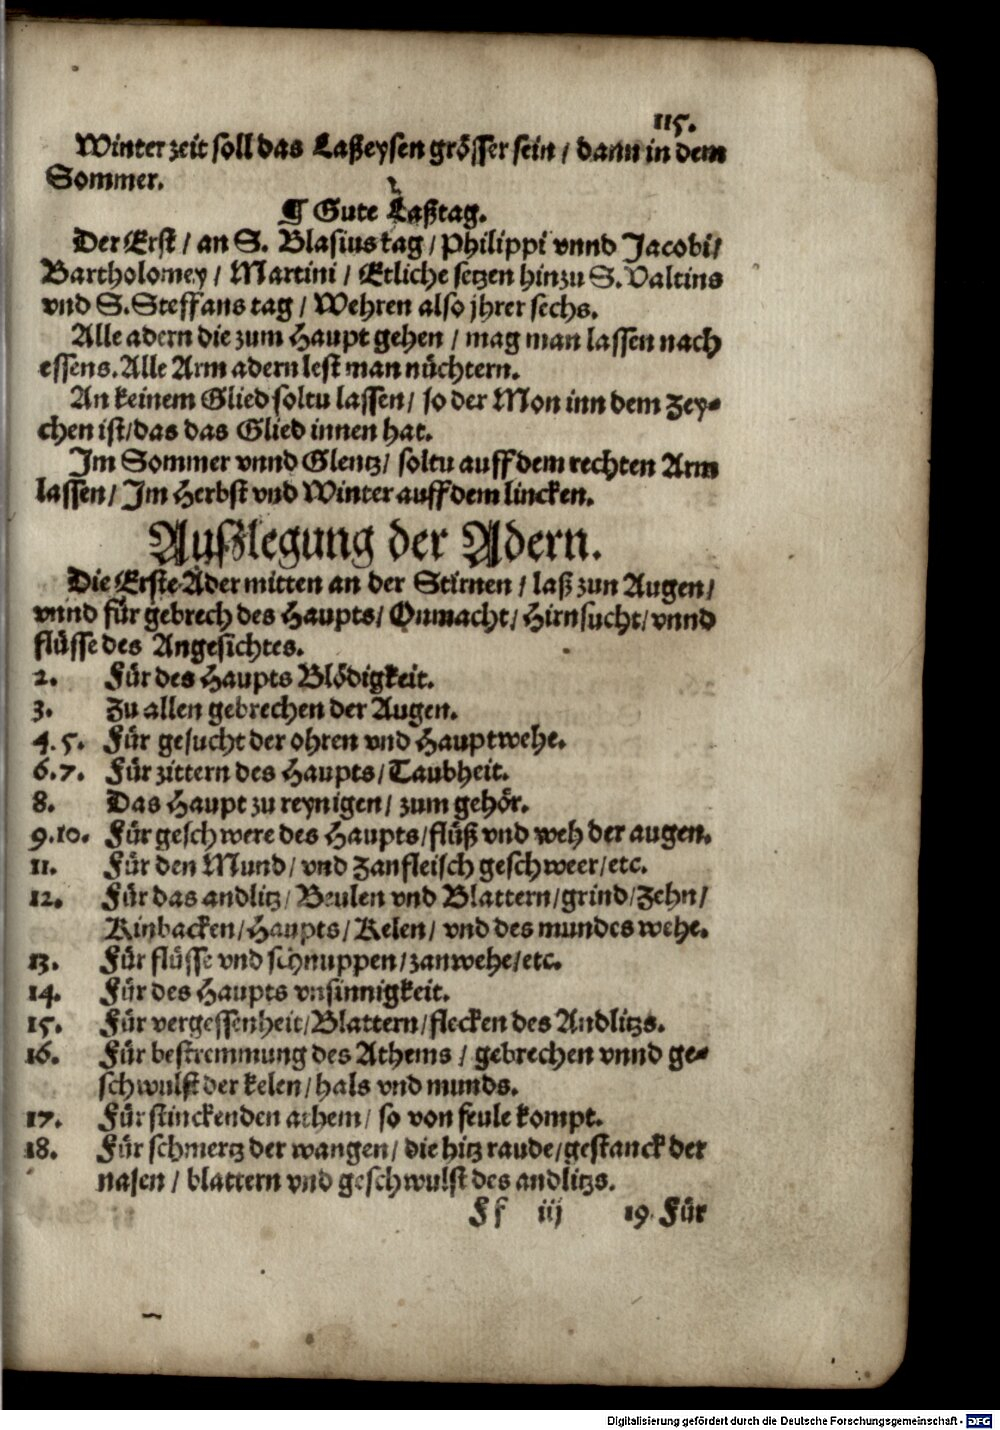 115.
Winter zeit soll das Laßeysen grösser sein / dann in dem
Sommer.
¶ Gute Laßtag.
Der Erst / an S. Blasius tag / Philippi vnnd Jacobi /
Bartholomey / Martini / Etliche setzen hinzu S. Valtins
vnd S. Steffans tag / Wehren also jhrer sechs.
Alle adern die zum Haupt gehen / mag man lassen nach
essens. Alle Arm adern lest man nüchtern.
An keinem Glied soltu lassen / so der Mon inn dem Zey-
chen ist / das das Glied innen hat.
Im Sommer vnnd Glentz / soltu auff dem rechten Arm
lassen / Im Herbst vnd Winter auff dem lincken.
Außlegung der Adern.
Die Erste Ader mitten an der Stirnen / laß zun Augen /
vnnd für gebrech des Haupts / Onmacht / Hirnsucht / vnnd
flüsse des Angesichtes.
2. Für des Haupts Blödigkeit.
3. Zu allen gebrechen der Augen.
4. 5. Für gesucht der ohren vnd Hauptwehe.
6. 7. Für zittern des Haupts / Taubheit.
8. Das Haupt zu reynigen / zum gehör.
9. 10. Für geschwere des Haupts / flüß vnd weh der augen.
11. Für den Mund / vnd Zanfleisch geschweer / etc.
12. Für das andlitz / Beulen vnd Blattern / grind / Zehn /
Kinbacken / Haupts / Kelen / vnd des mundes wehe.
13. Für flüsse vnd schnuppen / zanwehe / etc.
14. Für des Haupts vnsinnigkeit.
15. Für vergessenheit / Blattern / flecken des Andlitzs.
16. Für bestremmung des Athems / gebrechen vnnd ge-
schwulst der kelen / hals vnd munds.
17. Für stinckenden athem / so von feule kompt.
18. Für schmertz der wangen / die hitz raude / gestanck der
nasen / blattern vnd geschwulst des andlitzs.
Ff iij 19. Für
Digitalisierung gefördert durch die Deutsche Forschungsgemeinschaft - DFG